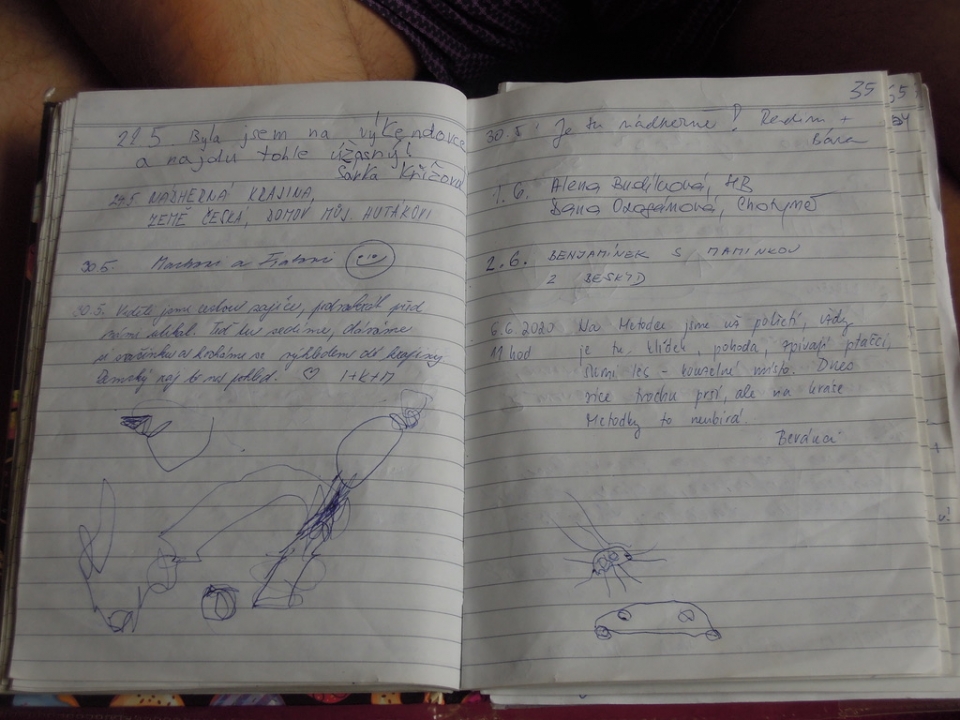 21.5 Byla jsem na výkendovce
a najdu tohle úžasný!
Šárka Křížová
29.5. NÁDHERNÁ KRAJINA,
ZEMĚ ČESKÁ, DOMOV MŮJ,
30.5. a
30.5. Viděli jsme zajíce, před
námi utíkal. Teď tu sedíme, dáváme
si svačinku a kocháme se výhledem do krajiny.
Zemský ráj to na pohled. ♡ I+K+M
35
30.5. Je tu nádherně! Radim +
Bára
1.6. Alena HB
Dana Chotyně
2.6. BENJAMÍNEK S MAMINKOU
Z BESKYD
6.6.2020 Na Metodce jsme už počtvrtí, vždy
11 hod je tu klídek, pohoda, zpívají ptáčci,
šumí les - kouzelné místo. Dnes
sice trochu prší, ale na kráse
Metodky to neubírá.